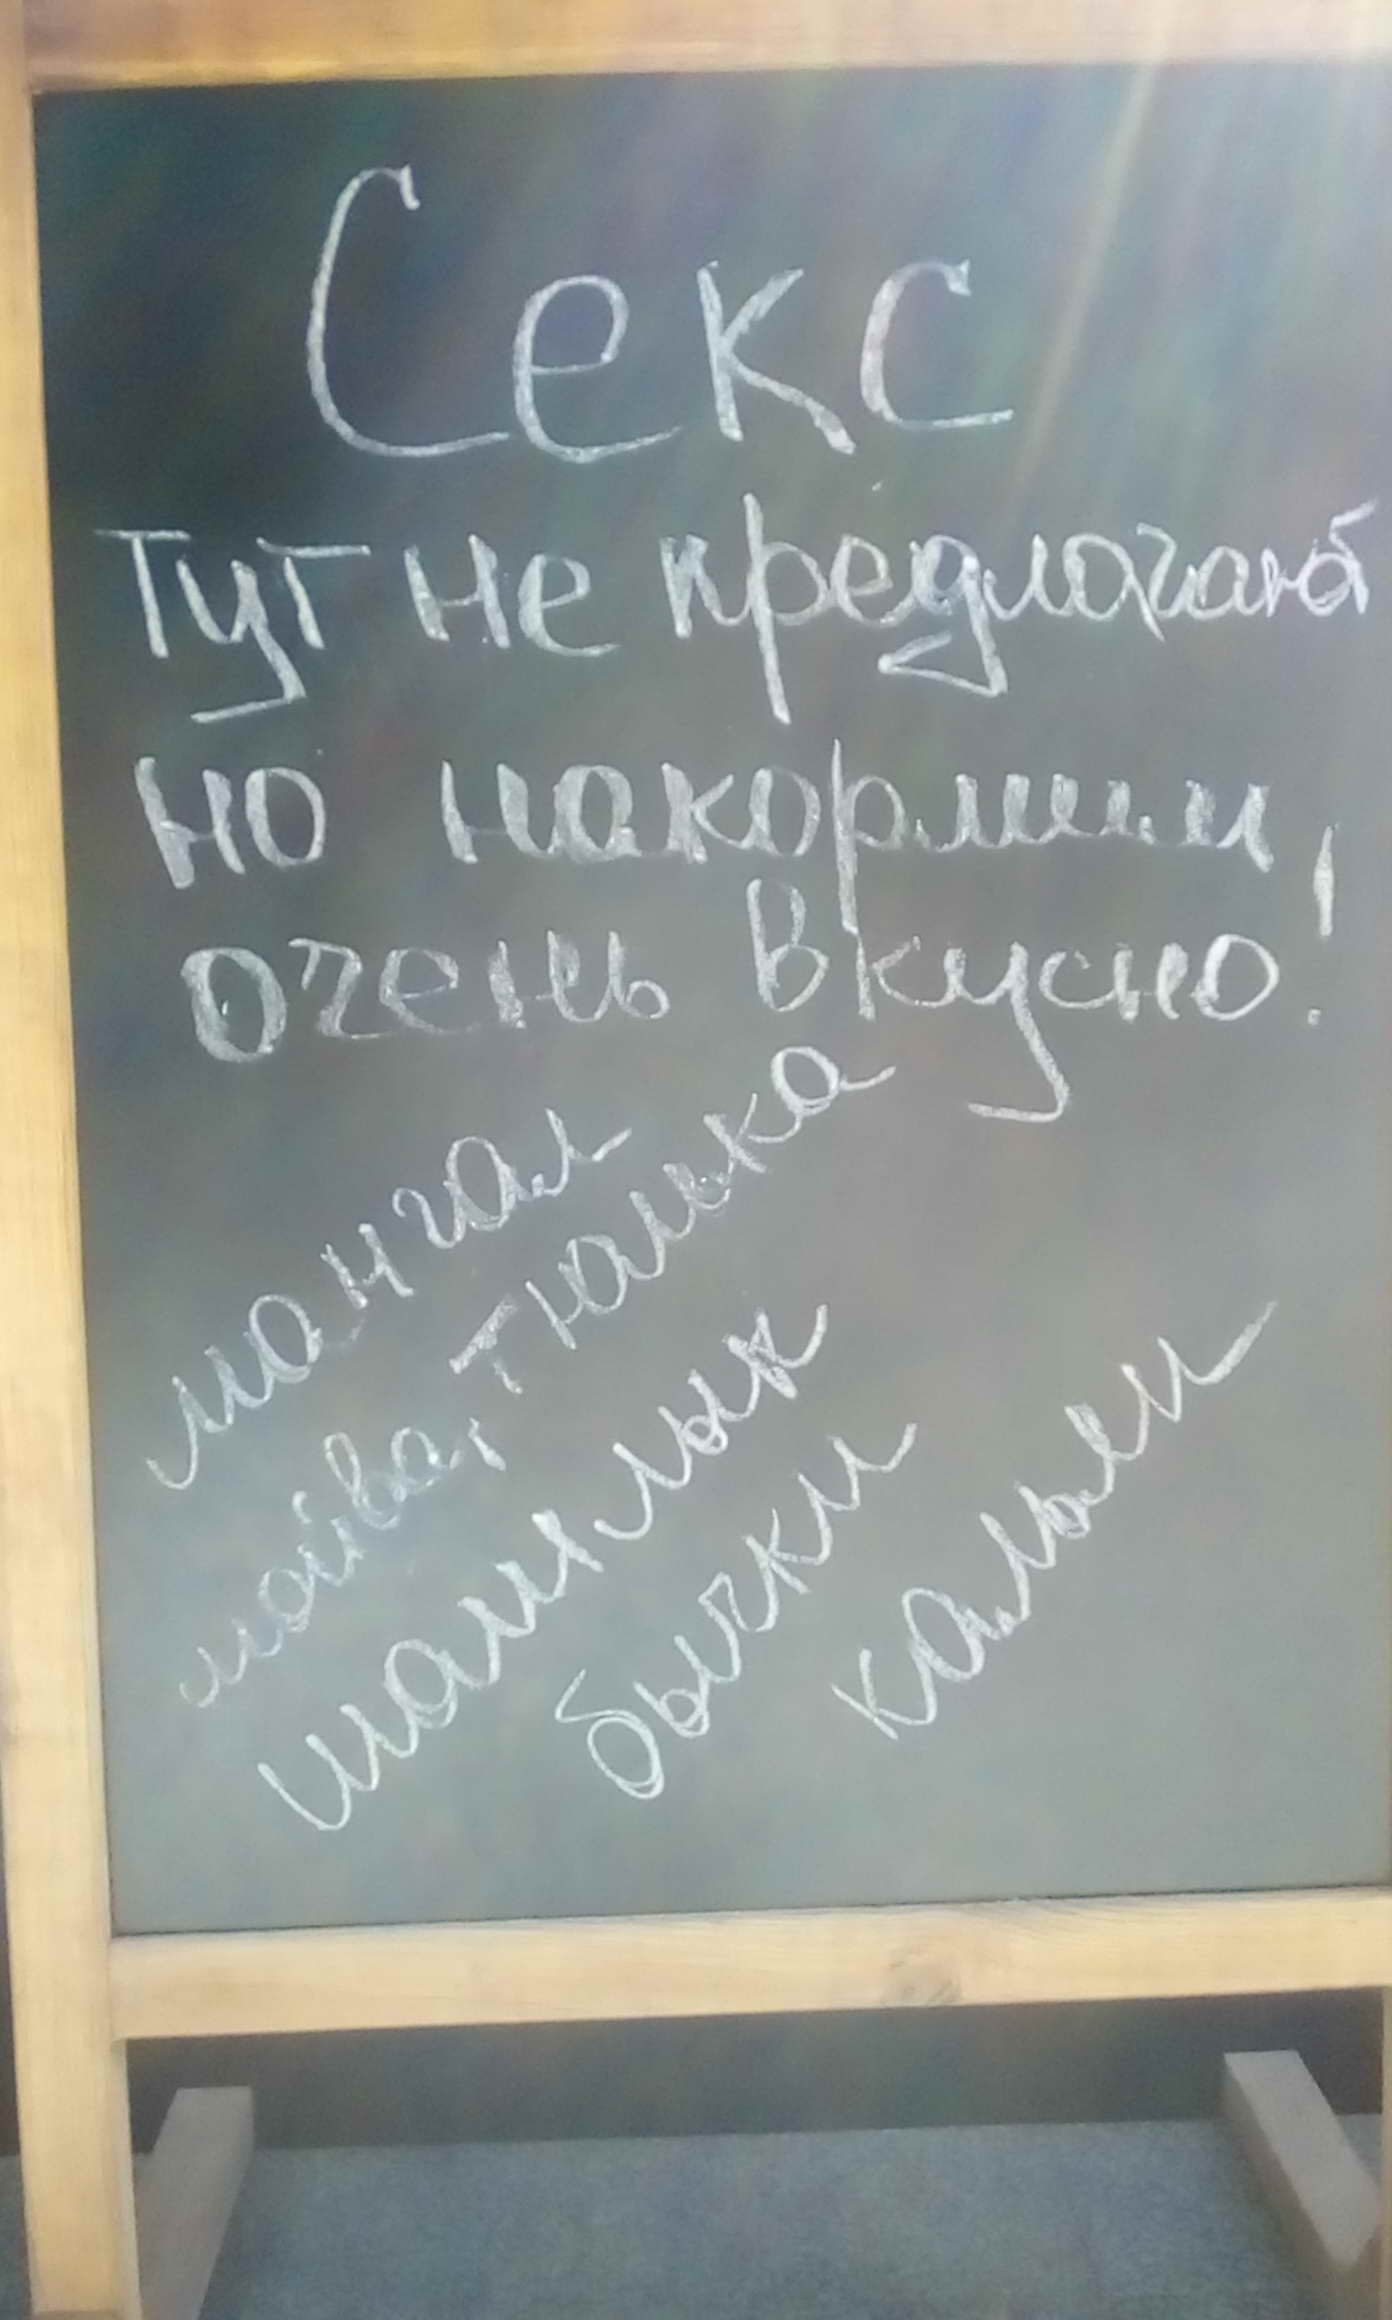 Секс
тут не предлогают
но накормим
очень вкусно!
мангал
мойва, тюлька
шашлык
бычки
кальян